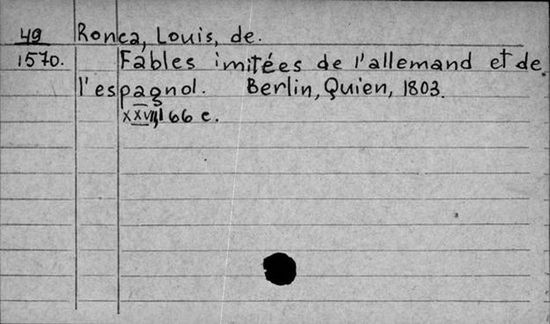 49 Ronca, Louis, de.
1570. Fables imitées de l'allemand et de
l'espagnol. Berlin, Quien, 1803.
XXVII, 166 c.